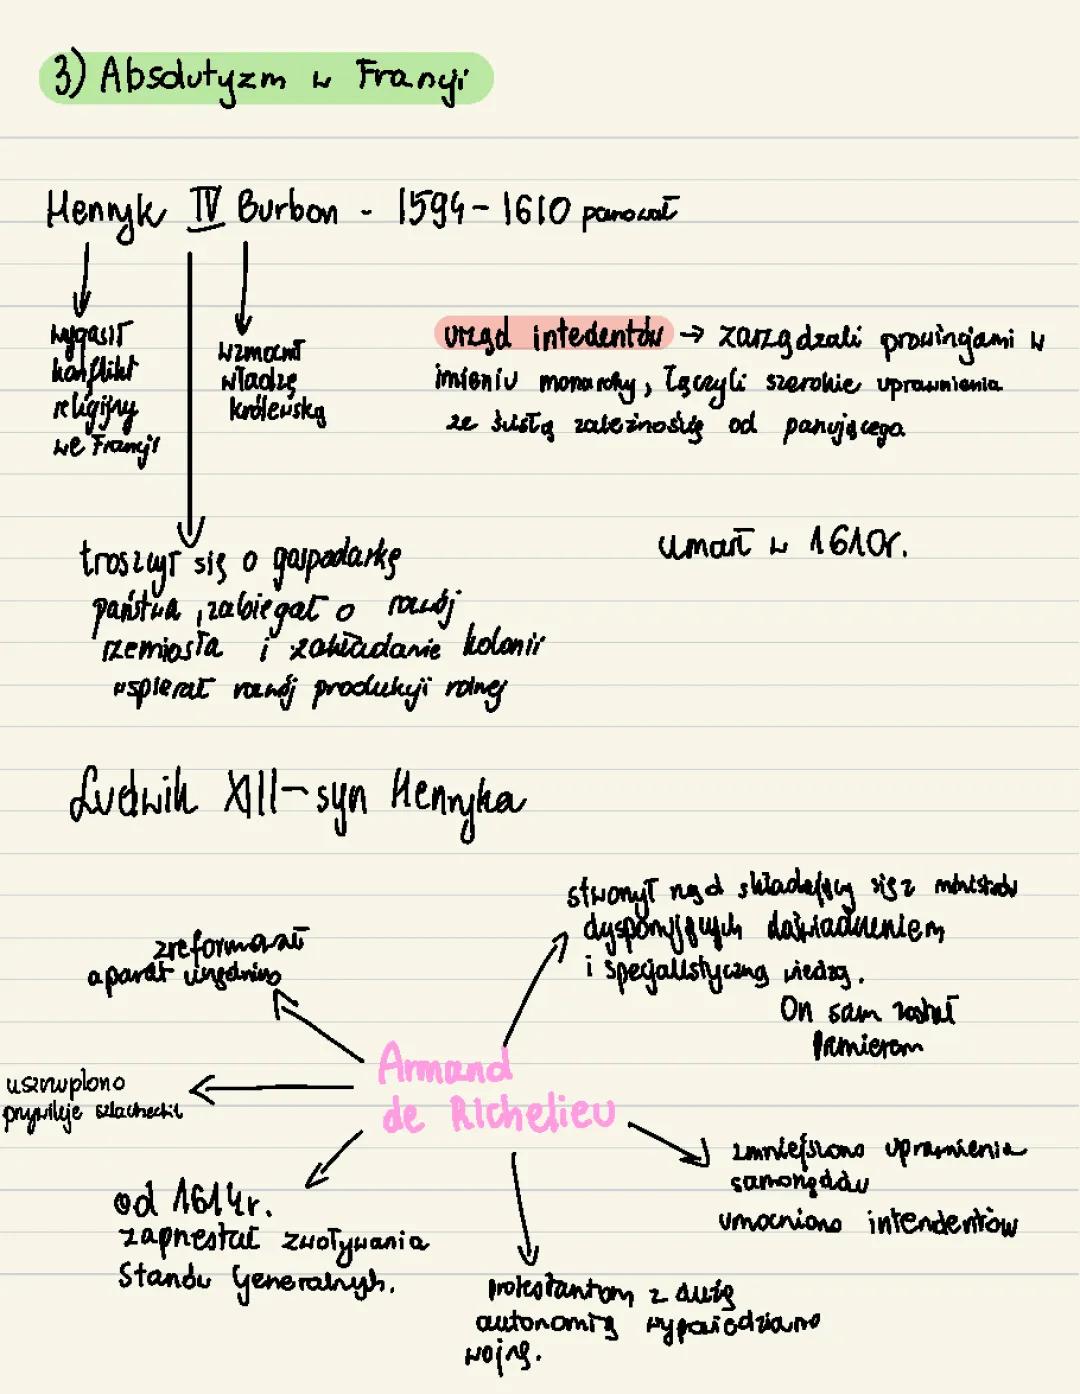 3) Absolutyzm w Francji
Henryk IV Burbon - 1594-1610 panował
wygasił
konflikt
religijny
we Francji
wzmocnił
władzę
królewską
urząd intedentów → zarządzali prowincjami w
imieniu monarchy, łączyli szerokie uprawnienia
ze ścisłą zależnością od panującego
troszczył się o gospodarkę
państwa, zabiegał o rozwój
rzemiosła i zakładanie kolonii
wspierał rozwój produkcji rolnej
umarł w 1610r.
Ludwik XIII - syn Henryka
stworzył rząd składający się z ministrów
dysponujących doświadczeniem
i specjalistyczną wiedzą.
On sam został
Premierem
zreformował
aparat urzędniczy
Armand
de Richelieu
uszczuplono
przywileje szlacheckie
od 1614r.
zaprzestał zwoływania
Stanów Generalnych.
protestantom z dużą
autonomią wypowiedziano
wojnę.
zmniejszono uprawnienia
samorządów
umocniono intendentów